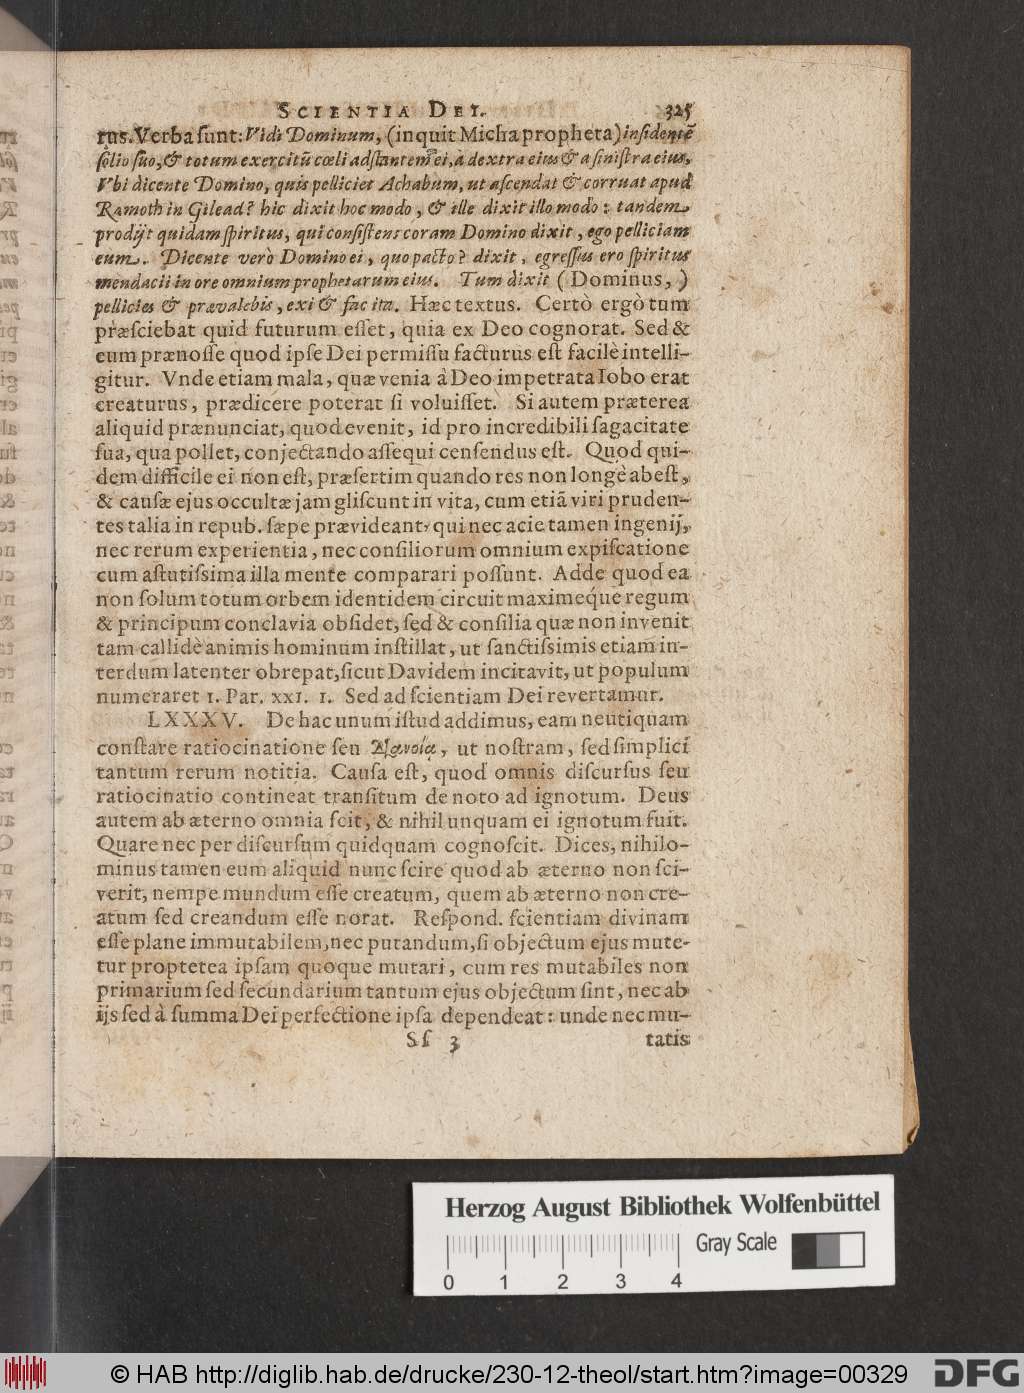 SCIENTIA DEI. 325
rus. Verba sunt: Vidi Dominum, (inquit Micha propheta) insidentē
solio suo, & totum exercitū cœli adstantem ei, a dextra eius & a sinistra eius,
Vbi dicente Domino, quis pelliciet Achabum, ut ascendat & corruat apud
Ramoth in Gilead? hic dixit hoc modo, & ille dixit illo modo: tandem
prodijt quidam spiritus, qui consistens coram Domino dixit, ego pelliciam
eum. Dicente verò Domino ei, quo pacto? dixit, egressus ero spiritus
mendacii in ore omnium prophetarum eius. Tum dixit (Dominus,)
pellicies & prævalebis, exi & fac ita. Hæc textus. Certò ergò tum
præsciebat quid futurum esset, quia ex Deo cognorat. Sed &
eum prænosse quod ipse Dei permissu facturus est facilè intelli-
gitur. Vnde etiam mala, quæ venia à Deo impetrata Iobo erat
creaturus, prædicere poterat si voluisset. Si autem præterea
aliquid prænunciat, quod evenit, id pro incredibili sagacitate
sua, qua pollet, conjectando assequi censendus est. Quod qui-
dem difficile ei non est, præsertim quando res non longè abest,
& causæ ejus occultæ jam gliscunt in vita, cum etiā viri pruden-
tes talia in repub. sæpe prævideant, qui nec acie tamen ingenij,
nec rerum experientia, nec consiliorum omnium expiscatione
cum astutissima illa mente comparari possunt. Adde quod ea
non solum totum orbem identidem circuit maximeque regum
& principum conclavia obsidet, sed & consilia quæ non invenit
tam callidè animis hominum instillat, ut sanctissimis etiam in-
terdum latenter obrepat, sicut Davidem incitavit, ut populum
numeraret 1. Par. XXI. 1. Sed ad scientiam Dei revertamur.
LXXXV. De hac unum istud addimus, eam neutiquam
constare ratiocinatione seu Διανοίᾳ, ut nostram, sed simplici
tantum rerum notitia. Causa est, quod omnis discursus seu
ratiocinatio contineat transitum de noto ad ignotum. Deus
autem ab æterno omnia scit, & nihil unquam ei ignotum fuit.
Quare nec per discursum quidquam cognoscit. Dices, nihilo-
minus tamen eum aliquid nunc scire quod ab æterno non sci-
verit, nempe mundum esse creatum, quem ab æterno non cre-
atum sed creandum esse norat. Respond. scientiam divinam
esse plane immutabilem, nec putandum, si objectum ejus mute-
tur proptetea ipsam quoque mutari, cum res mutabiles non
primarium sed secundarium tantum ejus objectum sint, nec ab
ijs sed à summa Dei perfectione ipsa dependeat: unde nec mu-
Ss 3 tatis
Herzog August Bibliothek Wolfenbüttel
Gray Scale
0 1 2 3 4
© HAB http://diglib.hab.de/drucke/230-12-theol/start.htm?image=00329
DFG